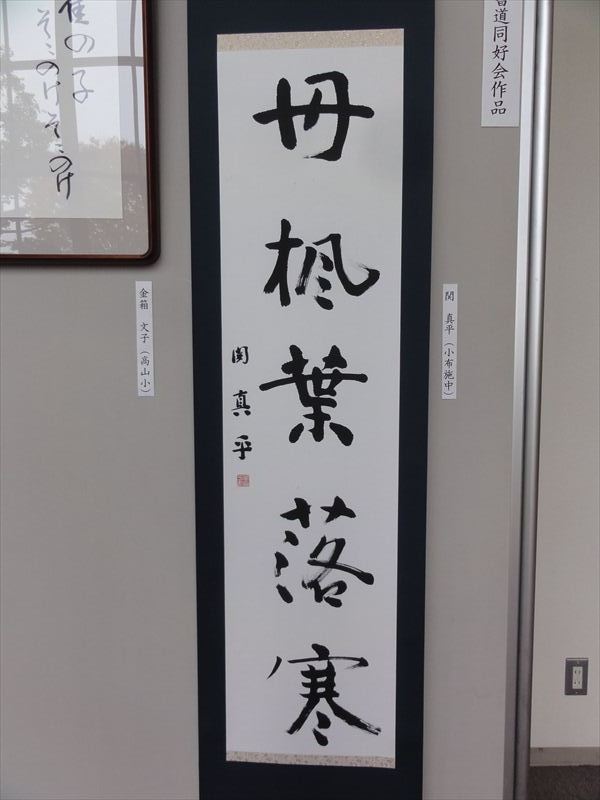 書道同好会作品
関 真平(小布施中)
丹楓葉落寒
関真平
金箱 文子(高山小)
雀の子
そこのけそこのけ